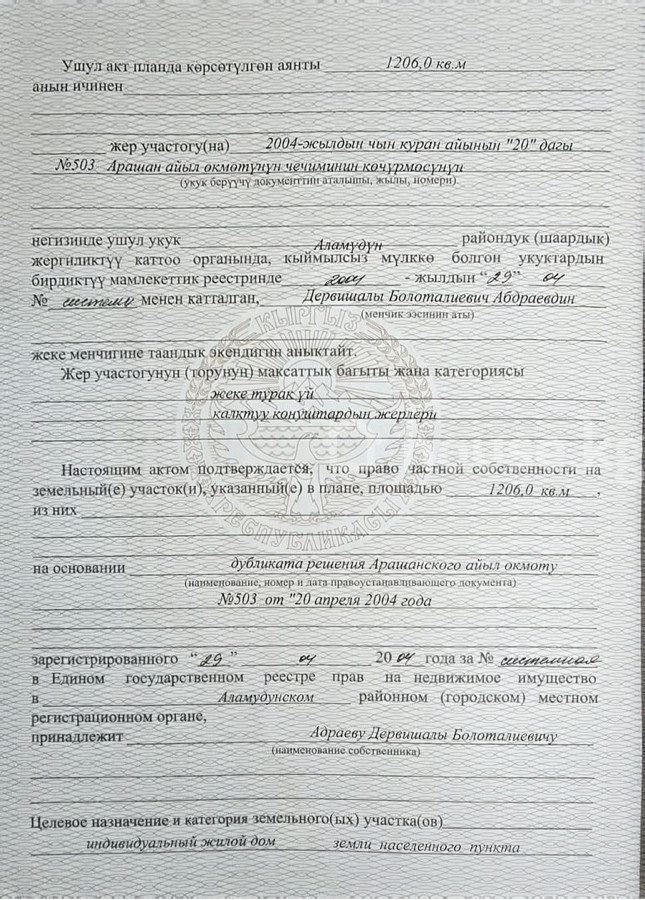 Ушул акт планда көрсөтүлгөн аянты 1206,0 кв.м
анын ичинен
жер участогу(на) 2004-жылдын чын куран айынын "20" дагы
№503 Арашан айыл өкмөтүнүн чечиминин көчүрмөсүнүн
(укук берүүчү документтин аталышы, жылы, номери)
негизинде ушул укук Аламүдүн райондук (шаардык)
жергиликтүү каттоо органында, кыймылсыз мүлккө болгон укуктардын
бирдиктүү мамлекеттик реестринде 2004 - жылдын “29” 04
№ менен катталган, Дервишалы Болоталиевич Абдраевдин
(менчик ээсинин аты)
КЫРГЫЗ РЕСПУБЛИКАСЫ
жеке менчигине таандык экендигин аныктайт.
Жер участогунун (торунун) максаттык багыты жана категориясы
жеке турак үй
калктуу конуштардын жерлери
Настоящим актом подтверждается, что право частной собственности на
земельный(е) участок(и), указанный(е) в плане, площадью 1206,0 кв.м ,
из них
на основании дубликата решения Арашанского айыл окмоту
(наименование, номер и дата правоустанавливающего документа)
№503 от "20 апреля 2004 года
зарегистрированного “29” 04 2004 года за № системная
в Едином государственном реестре прав на недвижимое имущество
в Аламудунском районном (городском) местном
регистрационном органе,
принадлежит Адраеву Дервишалы Болоталиевичу
(наименование собственника)
Целевое назначение и категория земельного(ых) участка(ов)
индивидуальный жилой дом земли населенного пункта